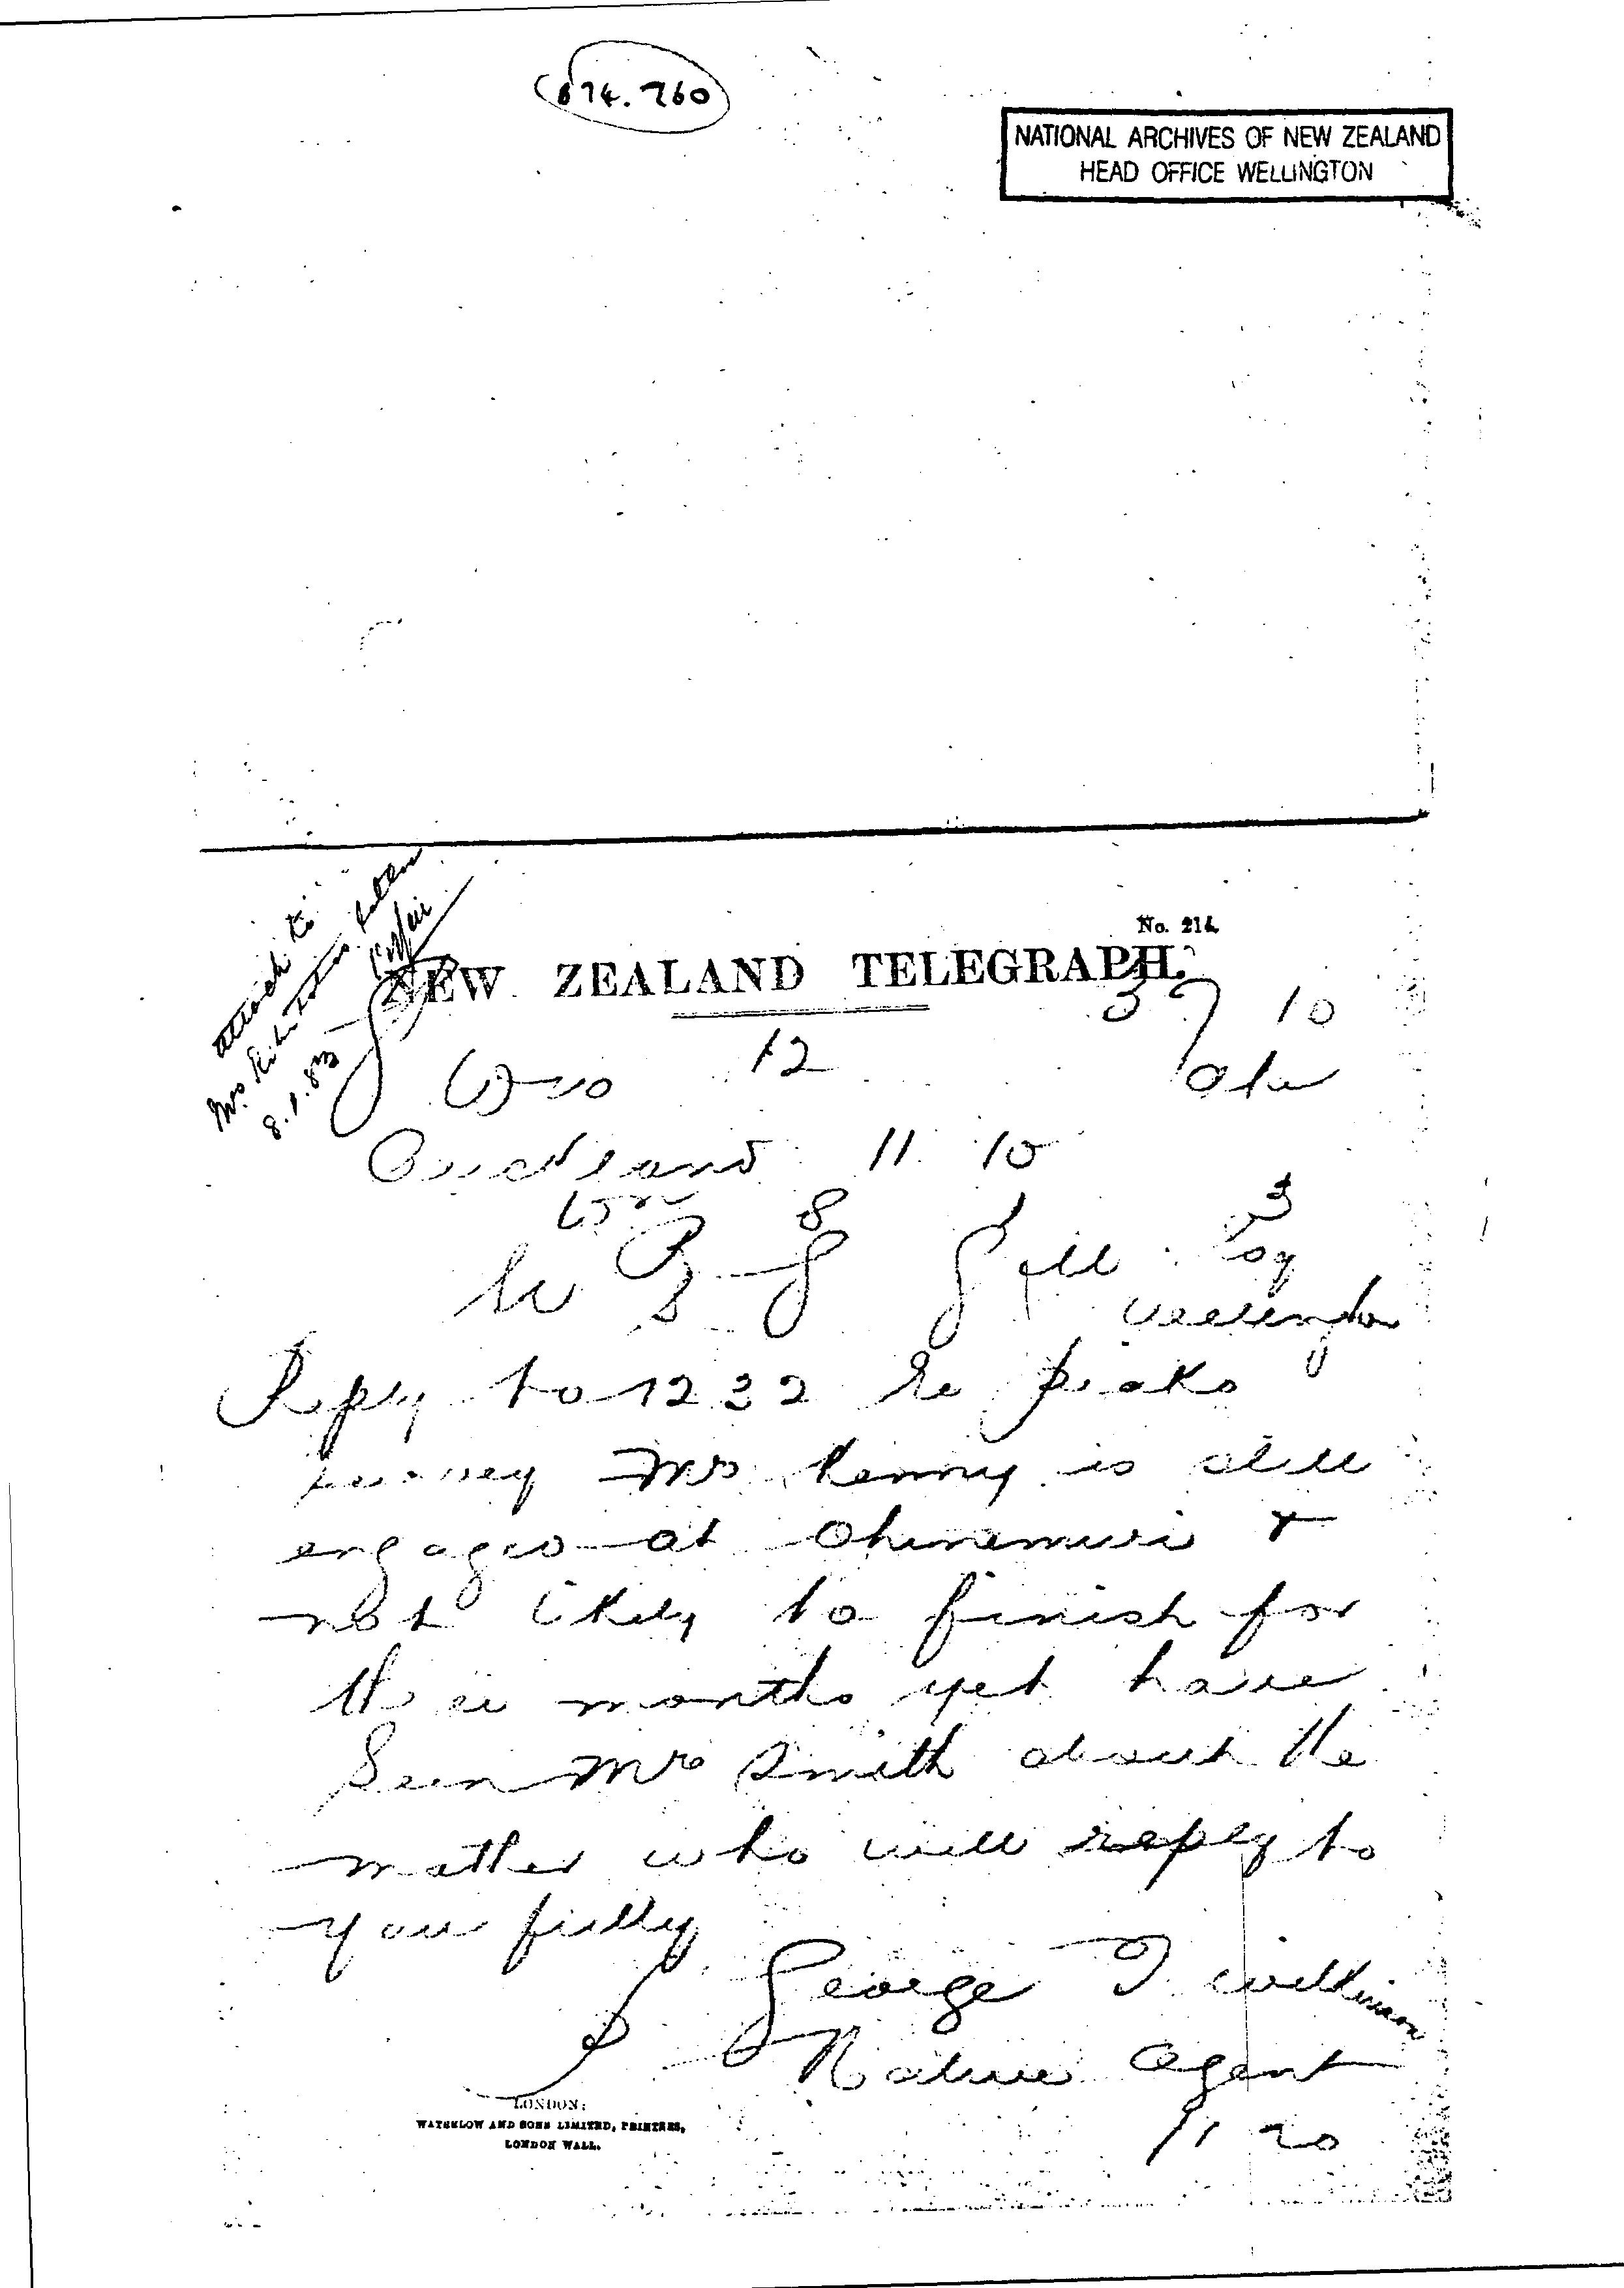 674.760
NATIONAL ARCHIVES OF NEW ZEALAND
HEAD OFFICE WELLINGTON
attach to
8.1.83
No. 214.
NEW ZEALAND TELEGRAPH.
12
10
Auckland 11 10
8 3
Gill Esq
Wellington
Reply to 1232 Re Piako
survey Mr Kenny is still
engaged at Ohinemuri &
not likely to finish for
three months yet have
Seen Mr Smith about the
matter who will reply to
you fully
George T Wilkinson
Native Agent
11 20
LONDON:
WATERLOW AND SONS LIMITED, PRINTERS,
LONDON WALL.